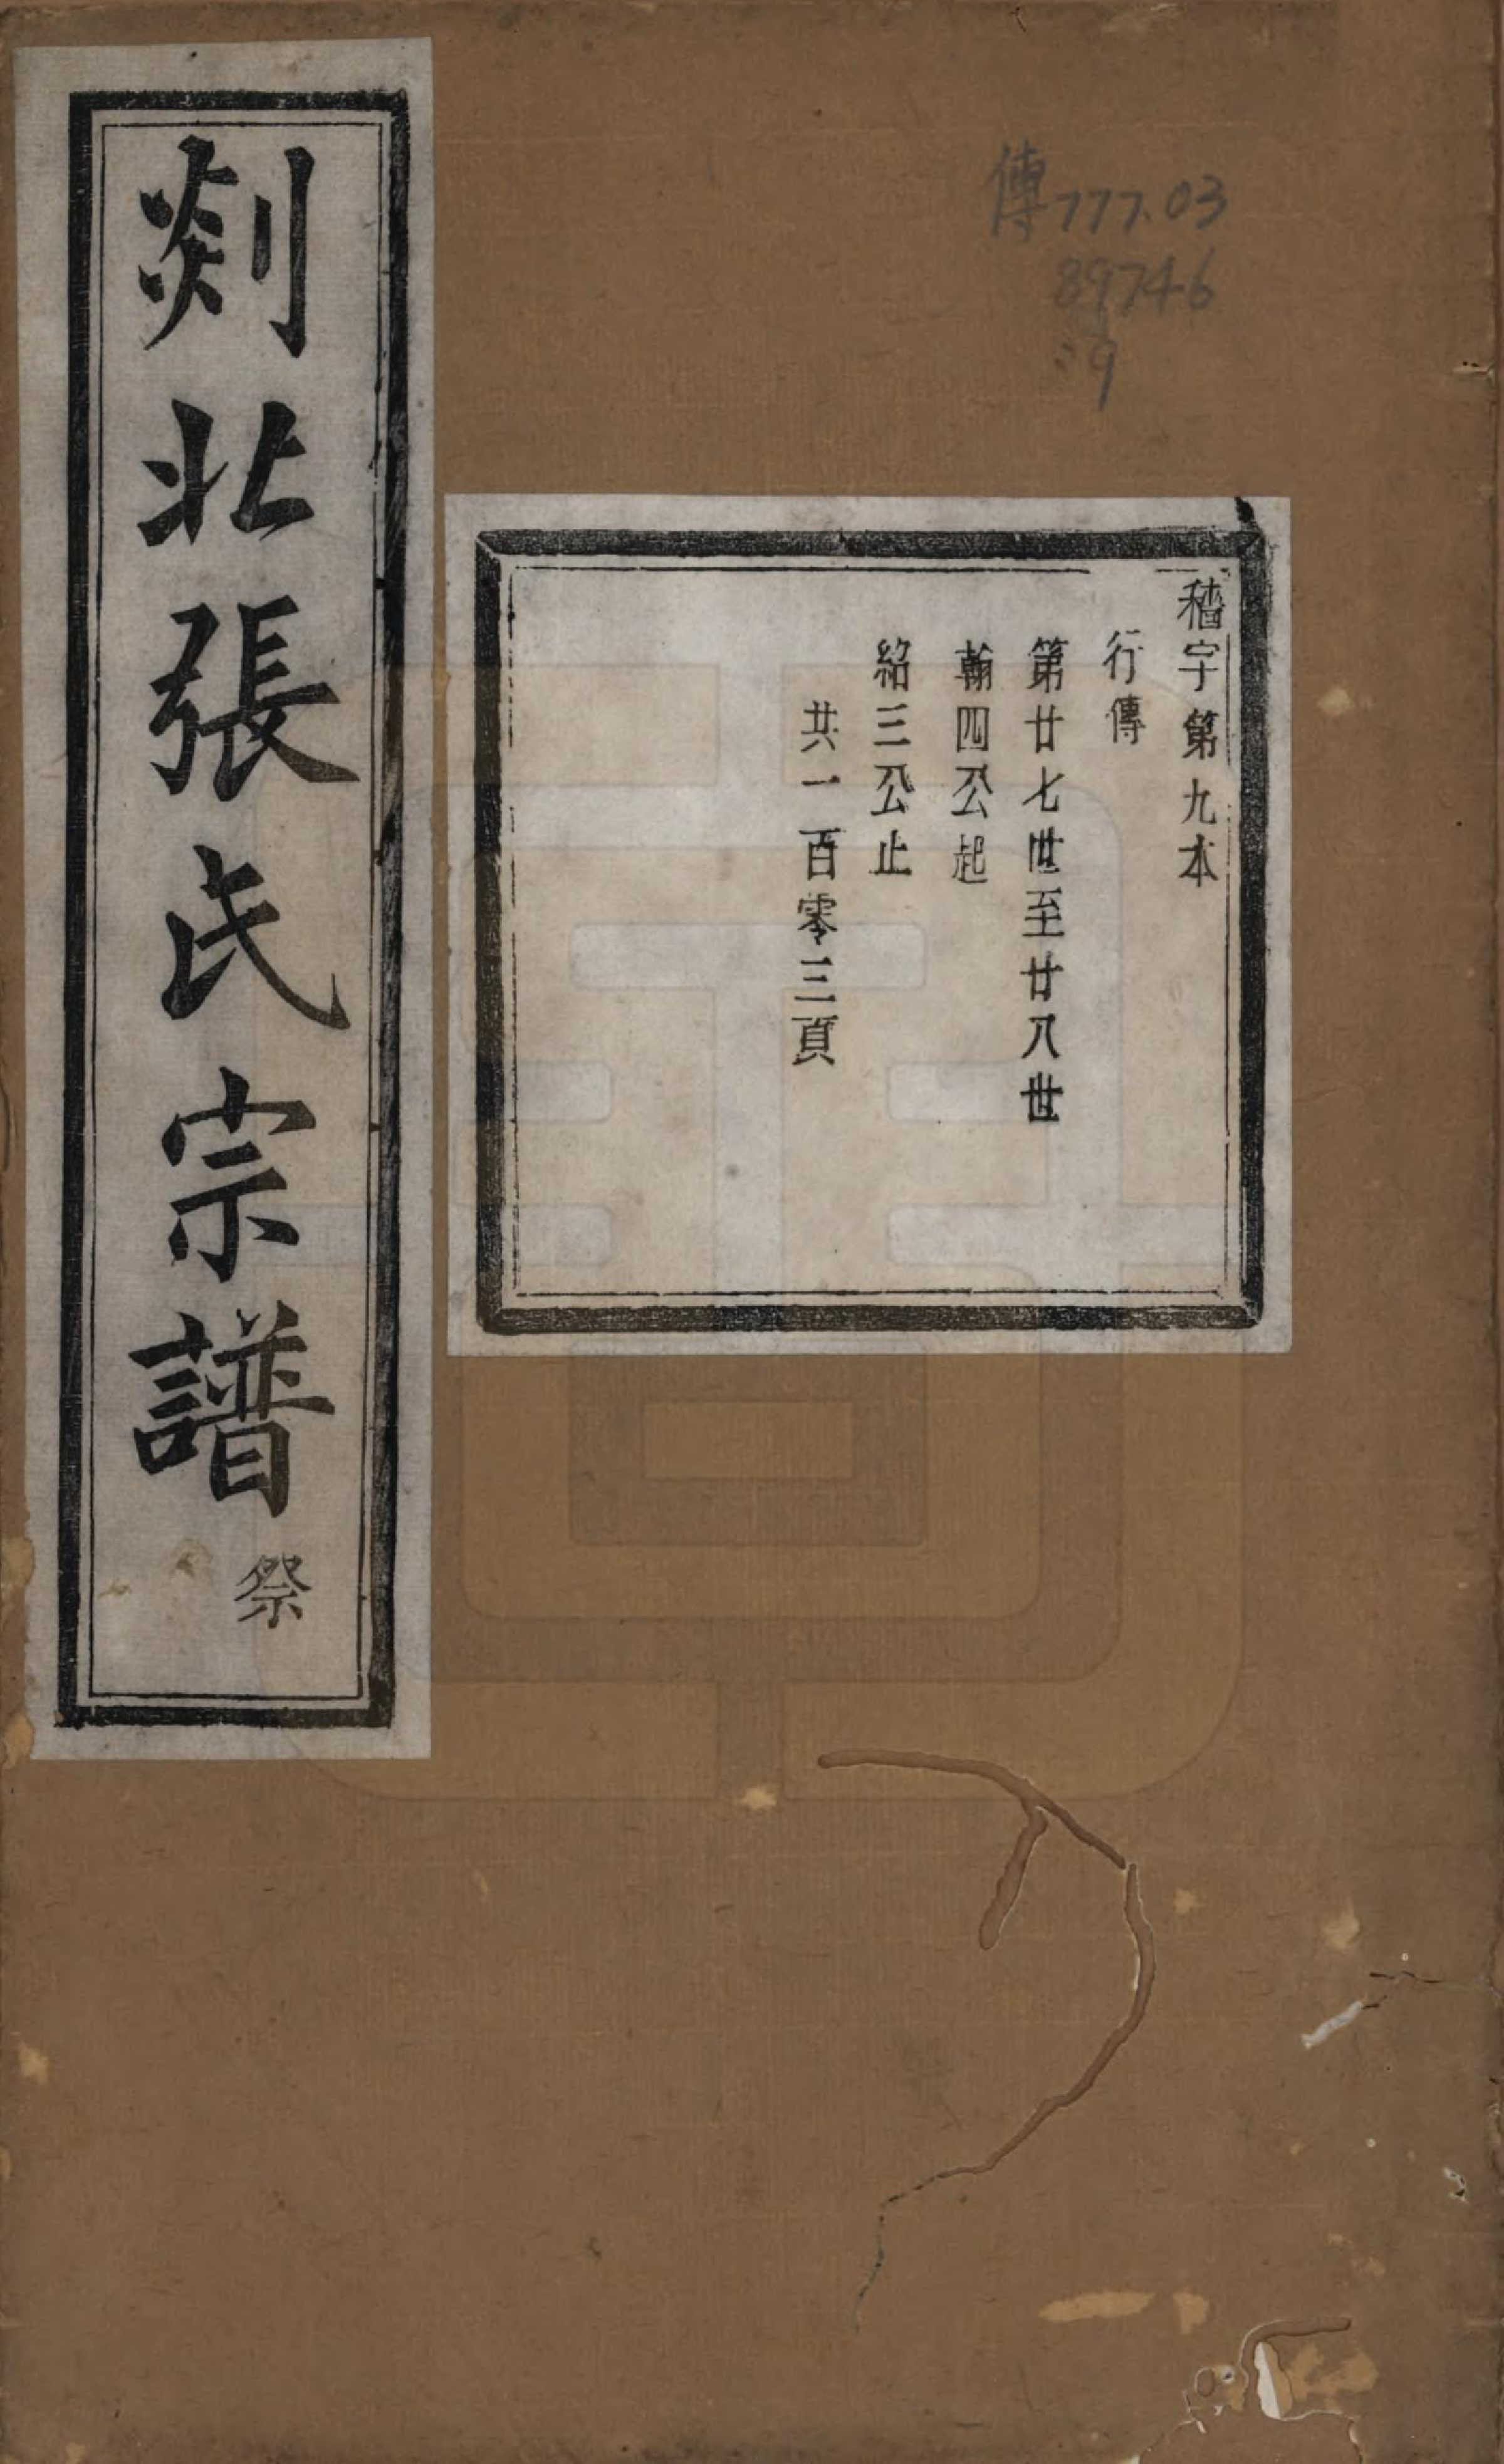 傳777.03
89746
:9
穡字第九本
行傳
第廿七世至廿八世
翰四公起
紹三公止
共一百零三頁
剡北張氏宗譜
祭